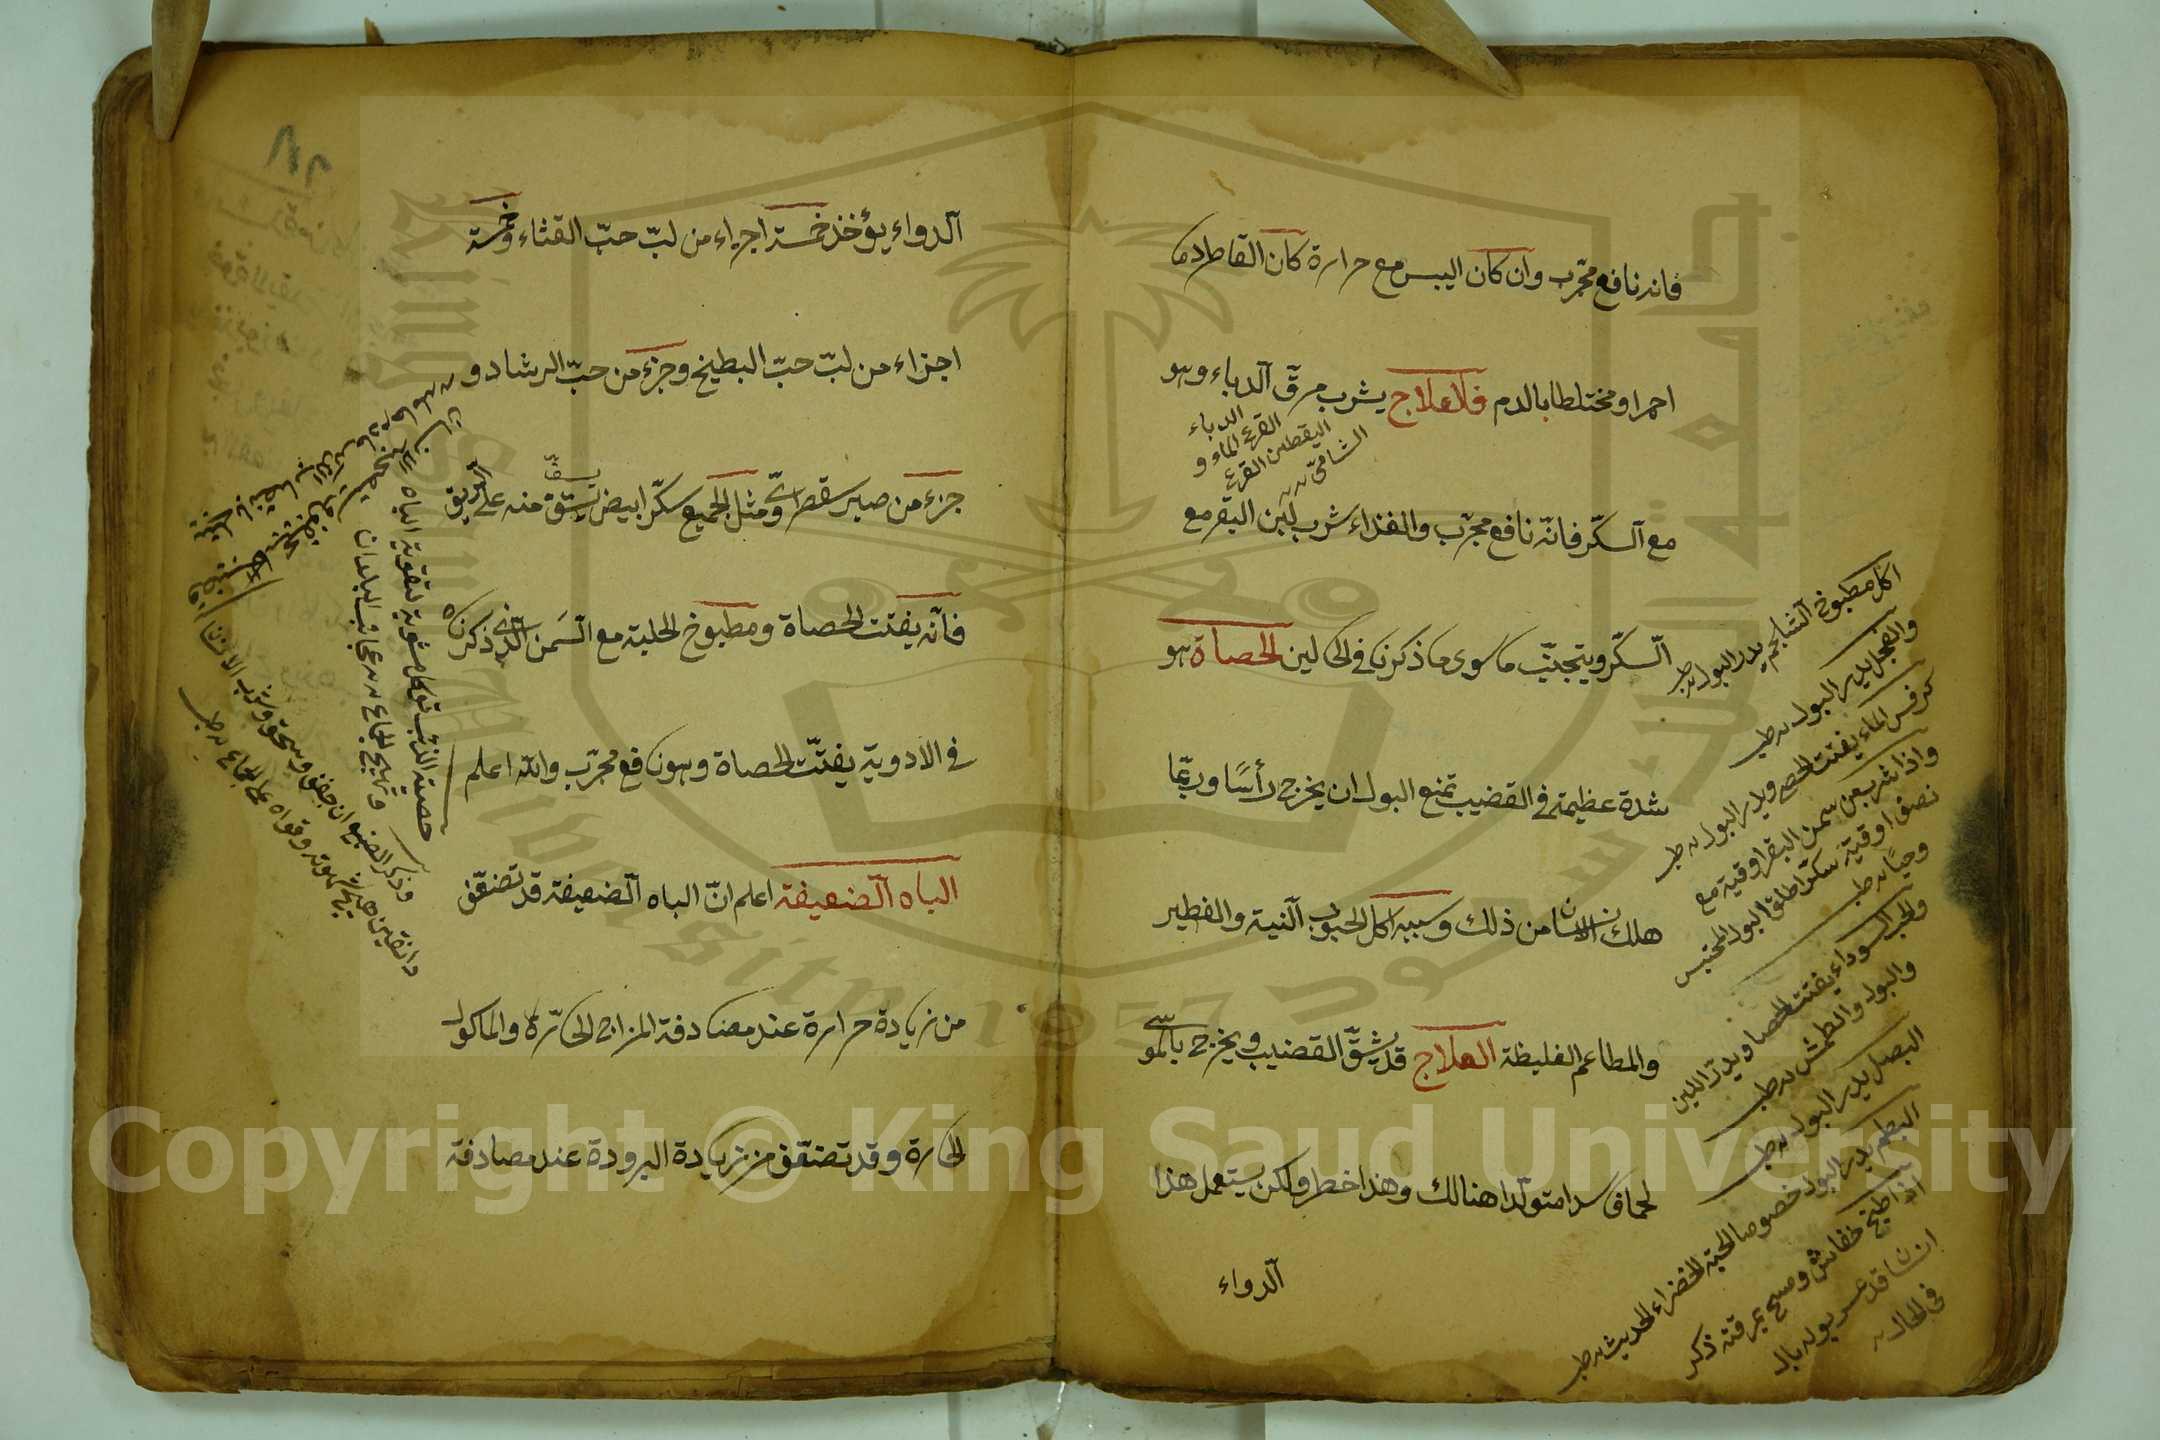 فانه نافع مجرب وان كان اليبس مع حرارة كان القاطر دما
احمر او مختلطا بالدم فالعلاج يشرب مرق الدباء وهو
الدباء
القرع الماء و
اليقطين القرع
الشامي
مع السكر فانه نافع مجرب والغذاء شرب لبن البقر مع
السكر ويتجنب ما سوى ما ذكرنا في الحالين الحصاة هو
شدة عظيمة في القضيب تمنع البول ان يخرج رأسا وربما
هلك الانسان من ذلك وسببه اكل الحبوب النية والفطير
والمطاعم الغليظة العلاج قد يشق القضيب ويخرج بالموسى
هنالك وهذا خطر ولكن يستعمل هذا
الدواء
اكل مطبوخ الشلجم يدر البول طب
والفجل يدر البول طب
كرفس الماء يفتت الحصى ويدر البول طب
واذا شرب من سمن البقر اوقية مع
نصف اوقية سكر اطلق البول المحتبس
وحيا طب
يفتت الحصا ويدر اللبن
والبول والطمث طب
البصل يدر البول طب
البطم يدر البول خصوصا الحبة الخضراء الحديث طب
اذا طبخ خفاش ومسح بمرقته ذكر
انسان قد عسر بوله بال
في الحال
الدواء يؤخذ خمسة اجزاء من لب حب القثاء وخمسة
اجزاء من لب حب البطيخ وجزء من حب الرشاد و
جزء من صبر سقطرى ومثل الجميع سكر ابيض يستف منه على الريق
يسف
فانه يفتت الحصاة ومطبوخ الحلبة مع السمن الذي ذكرناه
في الادوية يفتت الحصاة وهو نافع مجرب والله اعلم
الباه الضعيفة اعلم ان الباه الضعيفة قد تضعف
من زيادة حرارة عند مصادفة المزاج الحارة والماكول
الحارة وقد تضعف من زيادة البرودة عند مصادفة
خصية الذئب تؤكل مشوية لتقوية الباه
وتهيج الجماع من عجائب البلدان